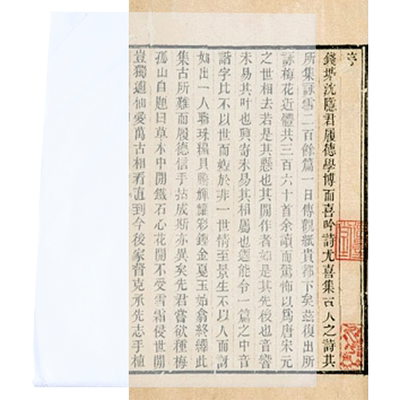 序
錢塘沈履君履德學博而喜吟詩尤喜集古人之詩其
所集詠雪二百餘篇一日傳觀紙貴都下矣茲復出所
詠梅花近體共三百六十首余讀而驚怖以為唐宋元
之世相去若是其懸也其開作者如是其先後也音響
末易其叶也興寄未易其相屬也迺能合一篇之中音
諧字比不以世而媲於非一世情至景生不以人而訝
如出一人聯珠穆貝騰輝躍彩鏗金戛玉始翕終繹此
集古所難而履德信手拈成斯亦異矣先君嘗欲種梅
孤山自題曰草木中開鐵石心花開不受雪霜侵世開
豈獨逋仙愛萬古相看直到今後家督克承先志手植